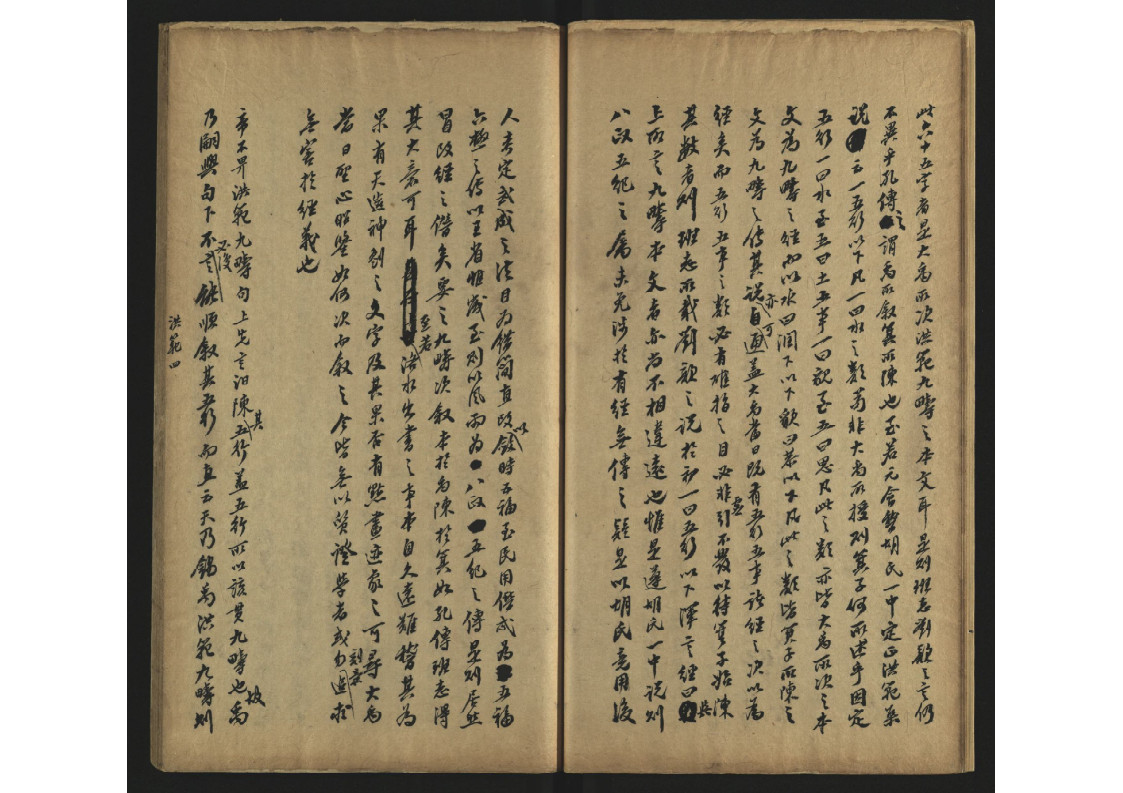 此六十五字者是大禹所次洪範九疇之本文耳是則班志劉歆之言仍
不異乎孔傳之謂禹所敘箕所陳也至若元舍雙胡氏一中定正洪範集
說云一五行以下凡一曰水之類苟非大禹所授則箕子何所述乎因定
五行一曰水至五曰土五事一曰貌至五曰思凡此之類亦皆大禹所次之本
文為九疇之經而以水曰潤下以下貌曰恭以下凡此之類皆箕子所陳之
文為九疇之傳其說亦可自通蓋大禹當日既有五行五事諸經之次以為
經矣而五行五事之類必有確指之目必非虛引不發以待箕子始陳
其數者則班志所載劉歆之說於初一曰五行以下渾言經曰與
上所言九疇本文者亦尚不相違遠也惟是遂胡氏一中說則
八政五紀之屬未免涉於有經無傳之疑是以胡氏竟用後
人考定武成之法目為錯簡直改以斂時五福至民用僭忒為五福
六極之傳以王省惟歲至則以風雨為八政五紀之傳是則居然
冒改經之僭矣要之九疇次敘本於禹陳於箕如孔傳班志得
其大意可耳至若洛水出書之事本自久遠難稽其為
果有天造神刻之文字及其果否有點畫迹象之可尋大禹
當日聖心昭鑒如何次而敘之今皆無以質證學者或勿刻意追求
無害於經義也
帝不畀洪範九疇句上先言汩陳其五行蓋五行所以該貫九疇也故禹
乃嗣興句下不必復言能順敘其五行而直云天乃錫禹洪範九疇則
洪範四